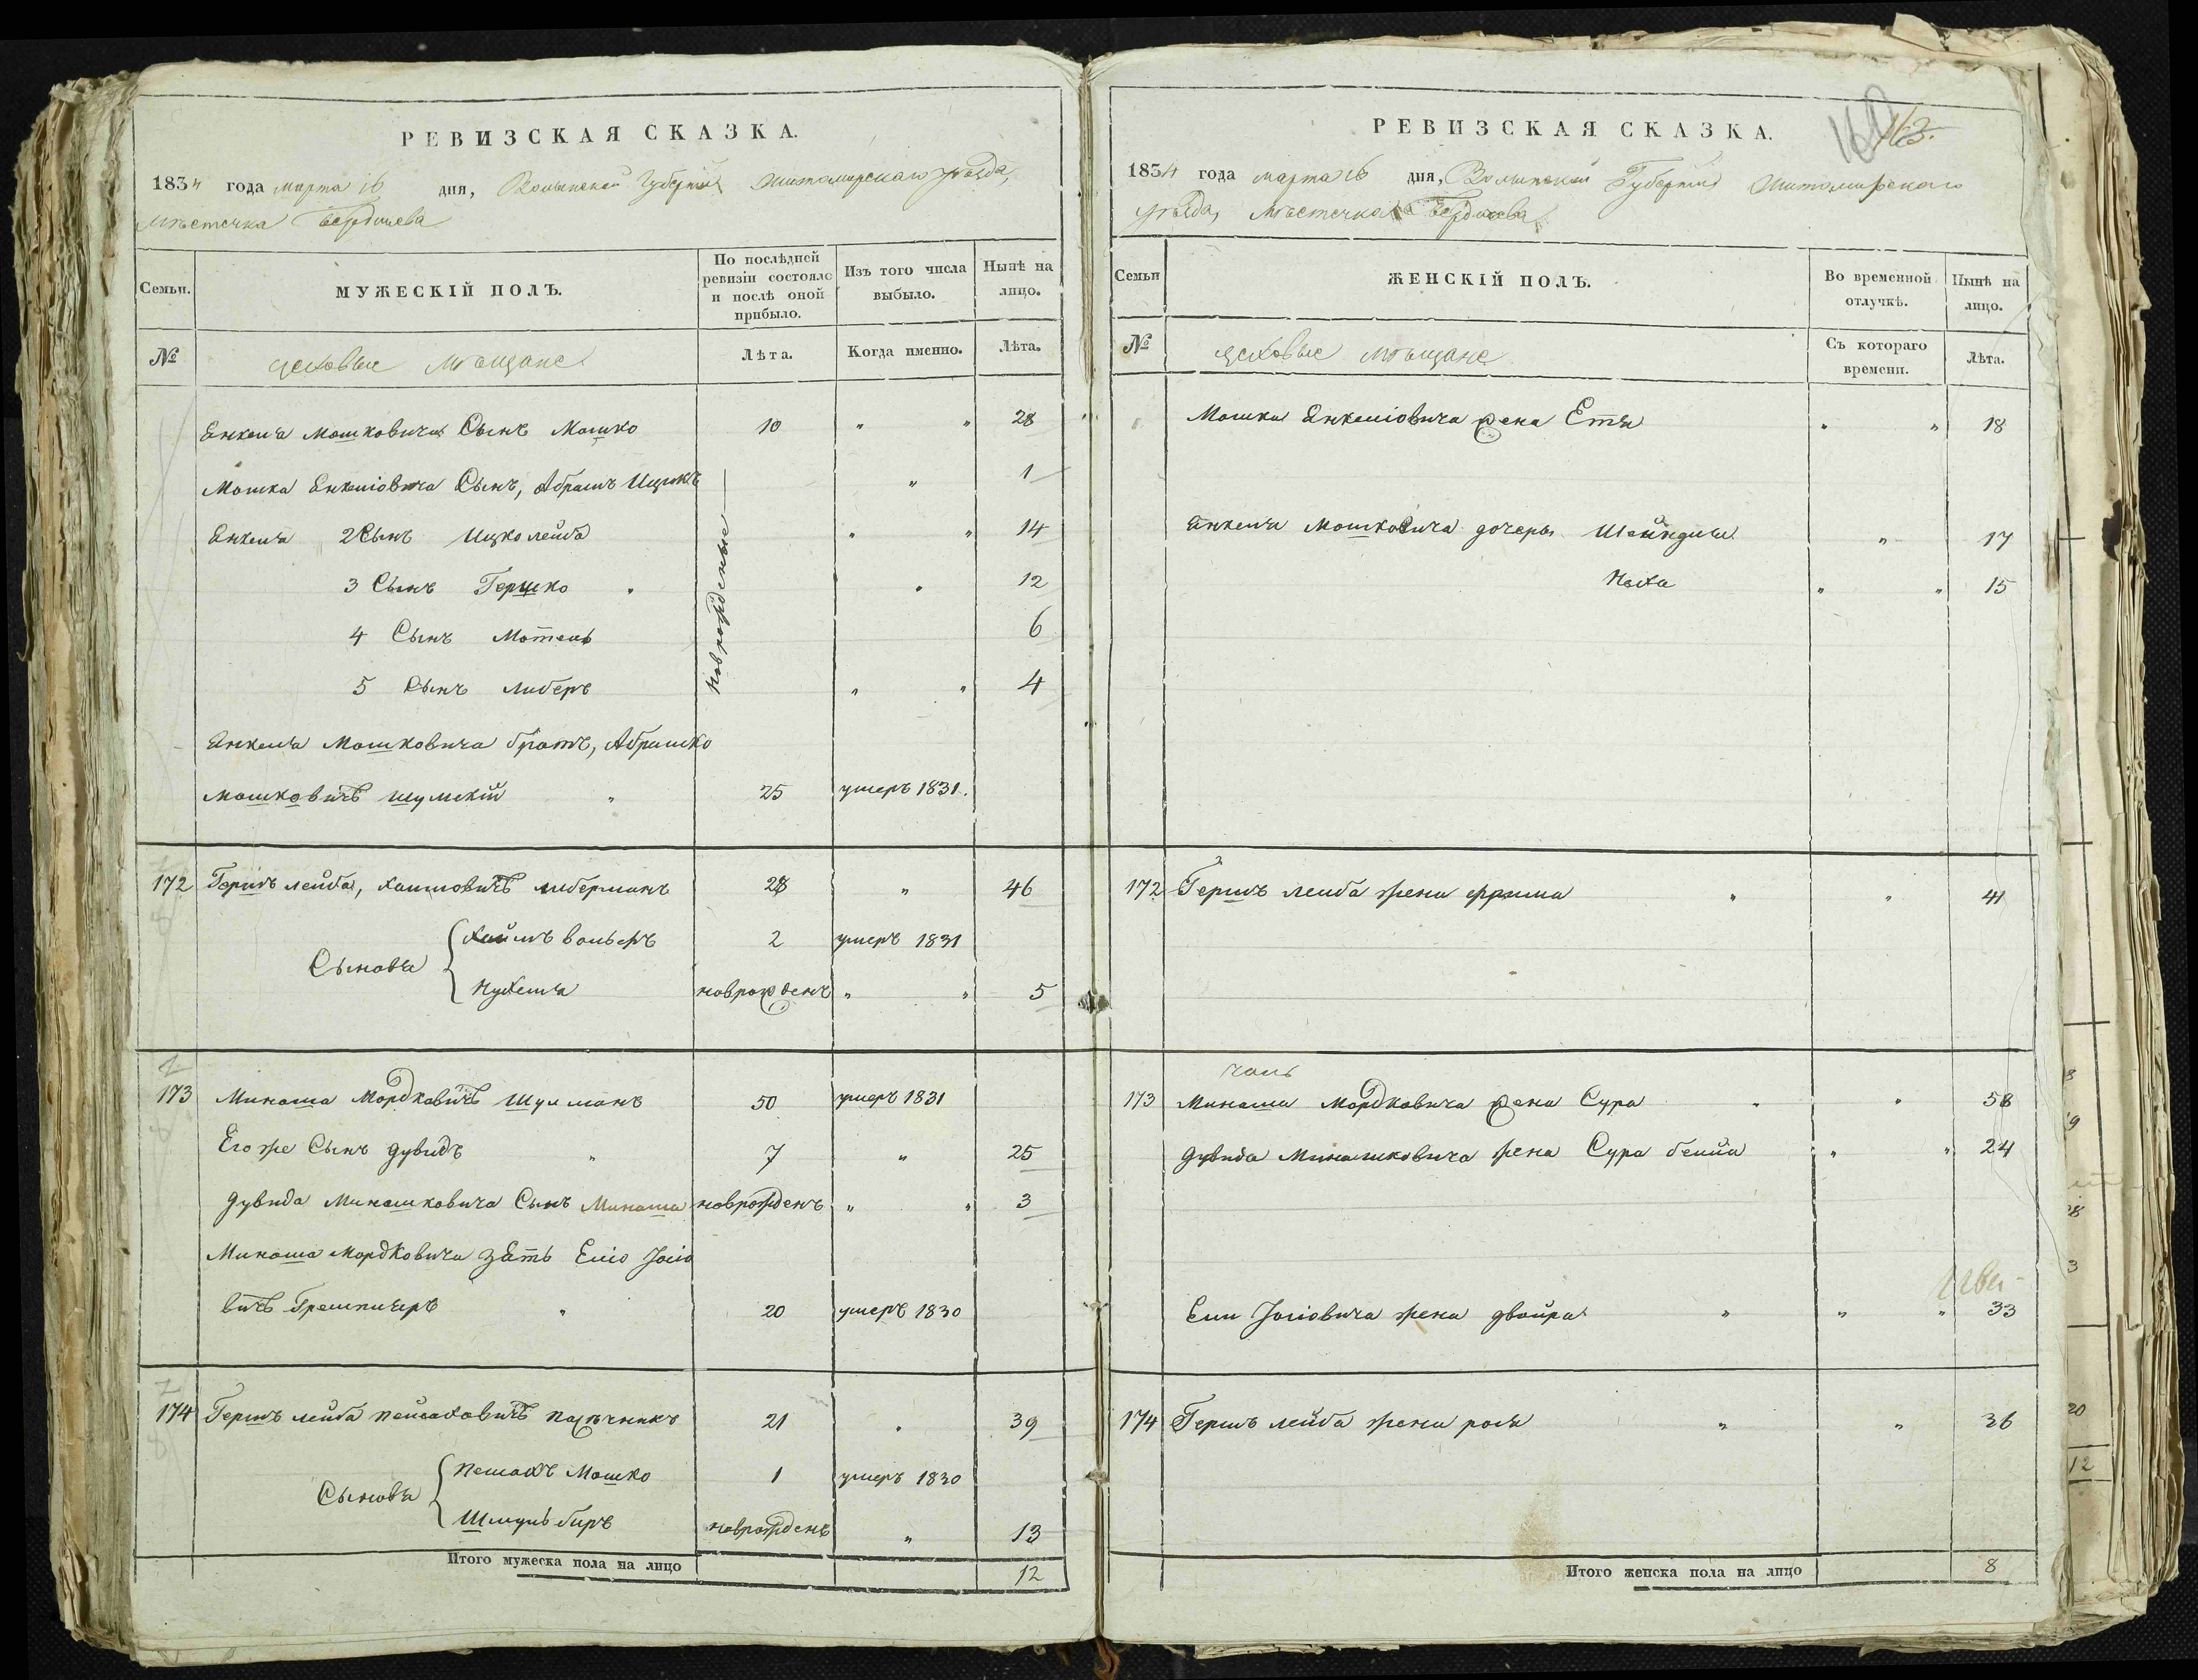 РЕВИЗСКАЯ СКАЗКА.
1834 года марта 16 дня, Волынской Губернии Житомирскаго уѣзда,
мѣстечка Бердичева
Семьи.
МУЖЕСКІЙ ПОЛЪ.
По послѣдней ревизіи состояло и послѣ оной прибыло.
Изъ того числа выбыло.
Нынѣ на лицо.
№
цеховые мѣщане
Лѣта.
Когда именно.
Лѣта.
Янкеля Мошковича Сынъ Мошко 10 " " 28
Мошка Янкеліовича Сынъ, Абрамъ Ицикъ " 1
новорожденные
Янкеля 2 Сынъ Ицко лейба " " 14
3 Сынъ Гершко " " 12
4 Сынъ Мотель 6
5 Сынъ Либеръ " " 4
Янкеля Мошковича братъ, Абрамко
Мошковичъ Шумскій " 25 умеръ 1831.
172 Гершъ лейба, Хаимовичъ либерманъ 28 " 46
Сыновья
Хаимъ вольфъ 2 умеръ 1831
Нухемя новорожденъ " " 5
173 Минаша Мордковичъ Шулманъ 50 умеръ 1831
Его же Сынъ Дувидъ " 7 " 25
Дувида Минашковича Сынъ Минаша новорожденъ " " 3
Минаша Мордковича зять Еліо Іосіо
вичъ " 20 умеръ 1830
174 Гершъ лейба Пейсаховичъ 21 " 39
Сыновья
Пейсахъ Мошко 1 умеръ 1830
Шмуль беръ новорожденъ " 13
Итого мужеска пола на лицо 12
163.
РЕВИЗСКАЯ СКАЗКА.
1834 года марта 16 дня, Волынской Губерніи Житомирскаго
уѣзда, Мѣстечка Бердичева
Семьи
ЖЕНСКІЙ ПОЛЪ.
Во временной отлучкѣ.
Нынѣ на лицо.
№
цеховые мѣщане
Съ котораго времени.
Лѣта.
Мошка Янкеліовича жена Етя " " 18
Янкеля Мошковича дочеры Шейндля " 17
Неха " " 15
172 Гершъ лейба жена фрима " " 41
173 Минаши Мордковича жена Сура " " 58
Дувида Минашковича жена Сура бейла " " 24
Ели Іосіовича жена двойра " " " 33
174 Гершъ лейба жена рося " " 36
Итого женска пола на лицо 8